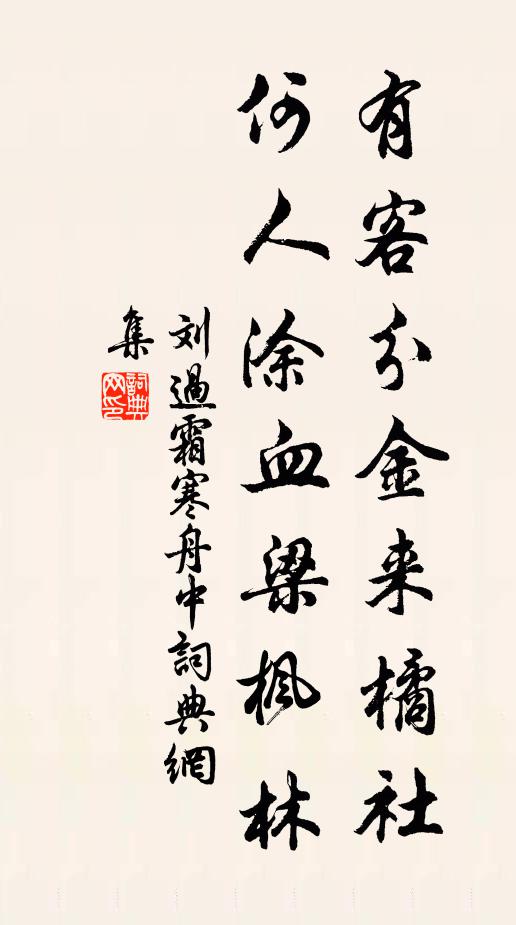 有客分金来橘社
何人涂血梁枫林
刘過霜寒舟中詞典網
集
詞典
网印